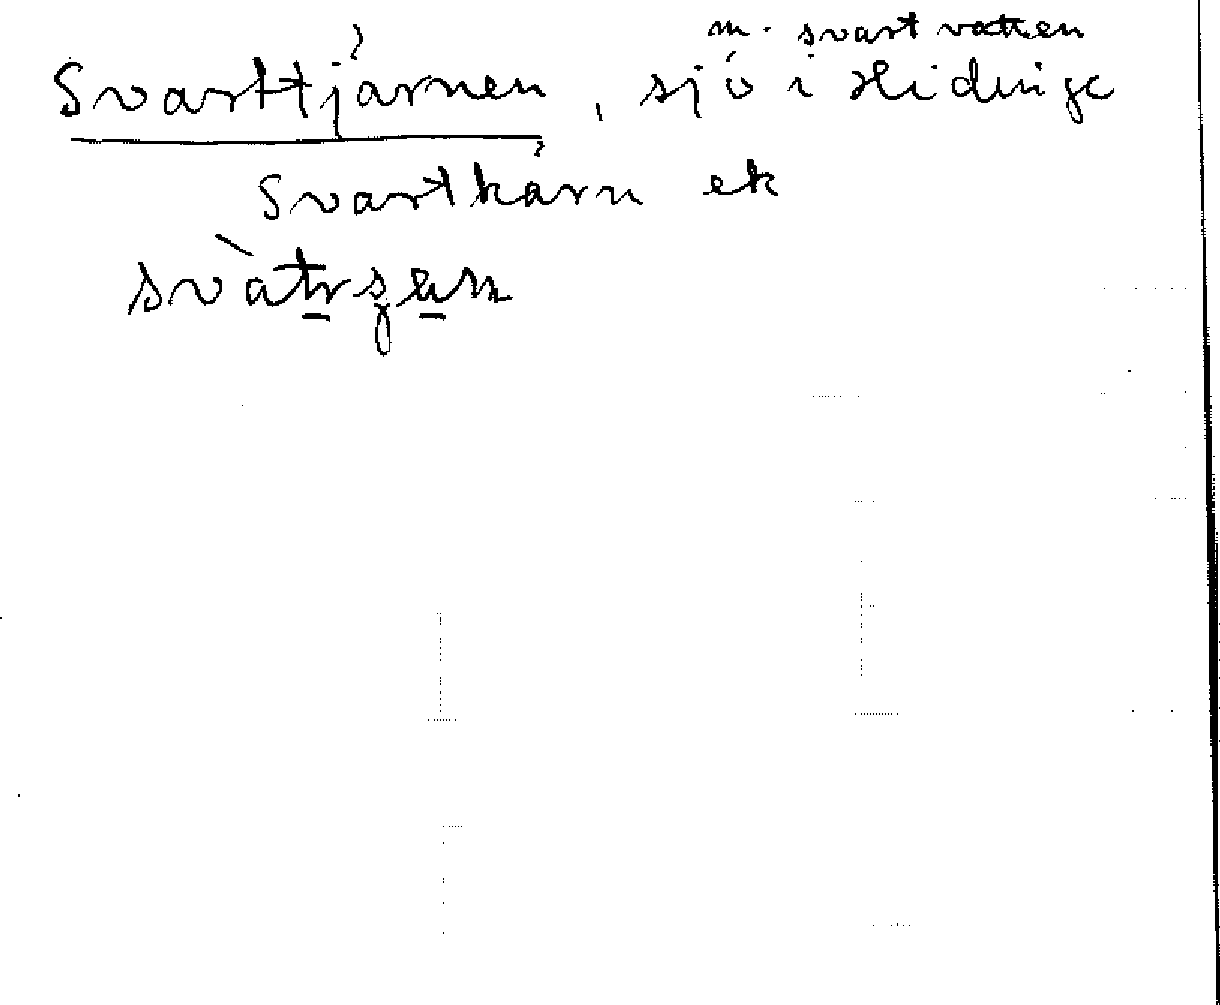 m. svart vatten
Svarttjärnen, sjö i Hidinge
Svartkärn ek